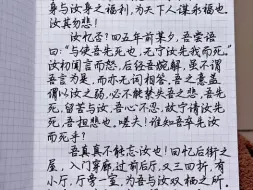 身与汝身之福利，为天下人谋永福也。
汝其勿悲！
汝忆否？四五年前某夕，吾尝语
曰：“与使吾先死也，无宁汝先我而死。”
汝初闻言而怒，后经吾婉解，虽不谓
吾言为是，而亦无词相答。吾之意盖
谓以汝之弱，必不能禁失吾之悲，吾先
死，留苦与汝，吾心不忍，故宁请汝先死，
吾担悲也。嗟夫！谁知吾卒先汝
而死乎？
吾真真不能忘汝也！回忆后街之
屋，入门穿廊，过前后厅，又三四折，有
小厅，厅旁一室，为吾与汝双栖之所。